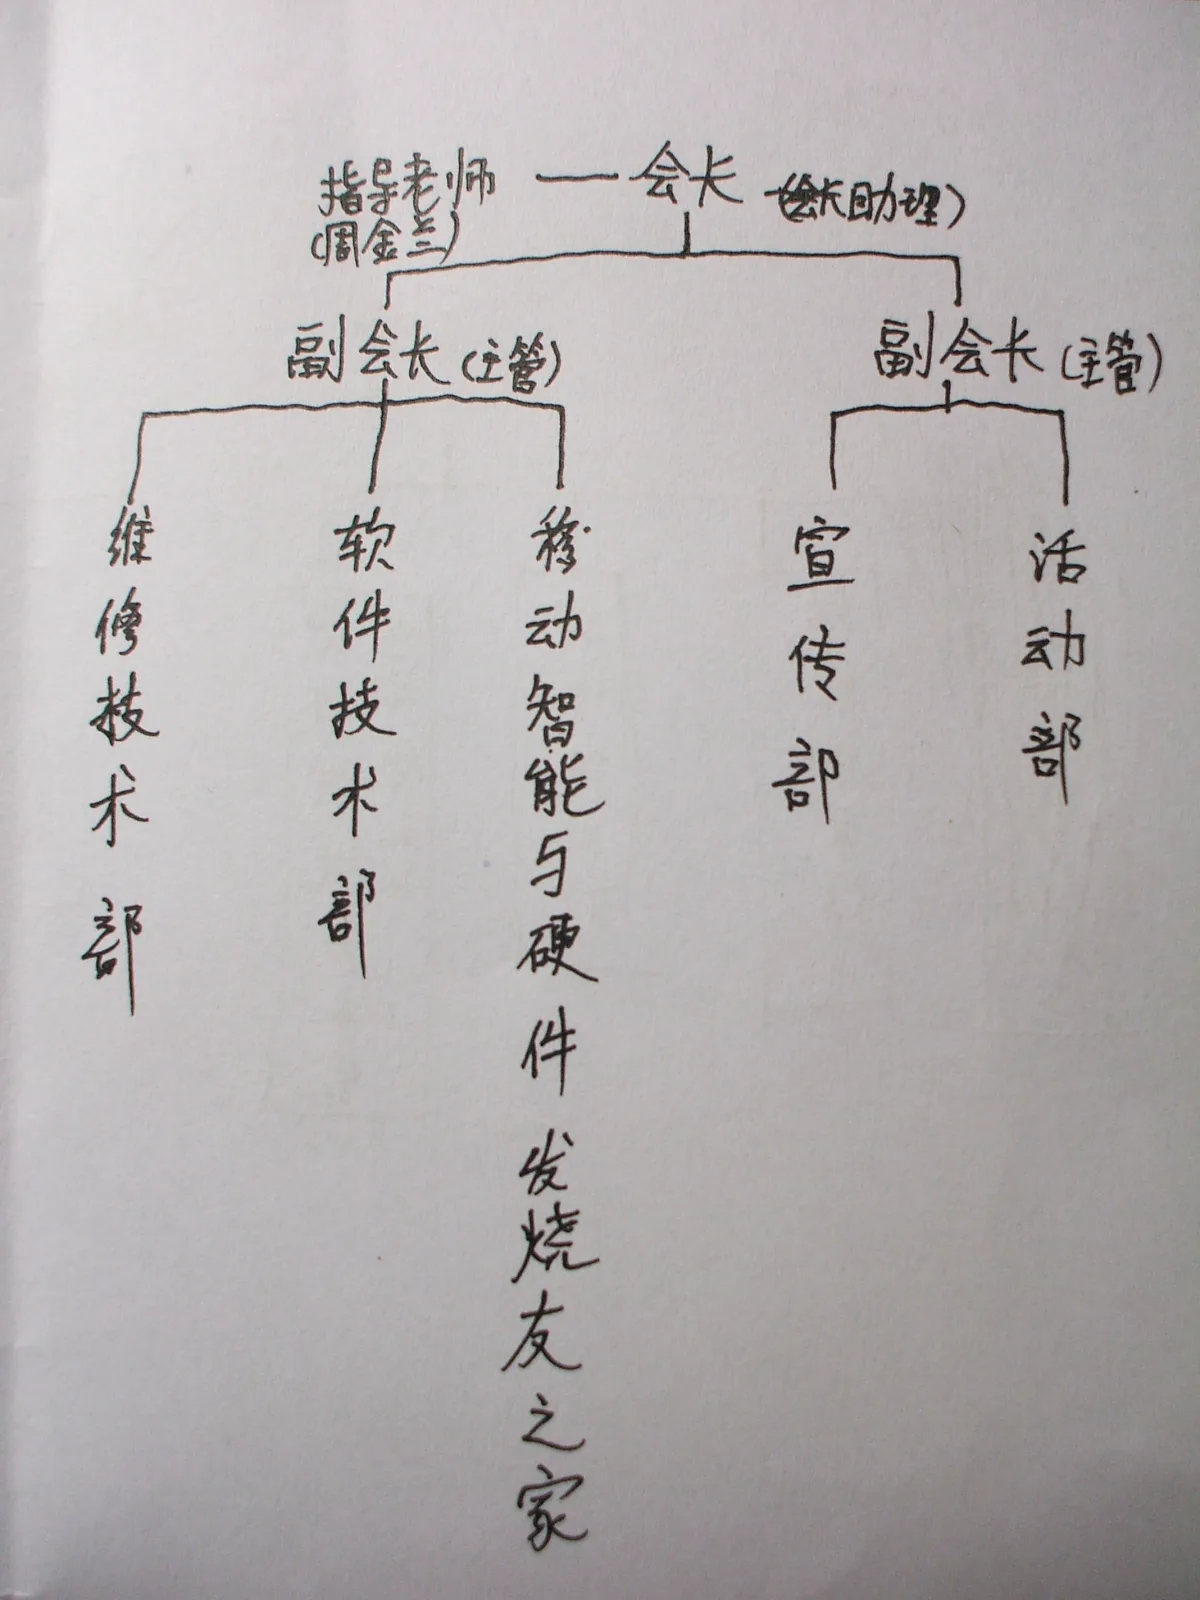 指导老师 — 会长 (会长助理)
(周金兰)
副会长(主管)
副会长(主管)
维修技术部
软件技术部
移动智能与硬件发烧友之家
宣传部
活动部